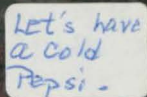 Let's have
a cold
Pepsi.